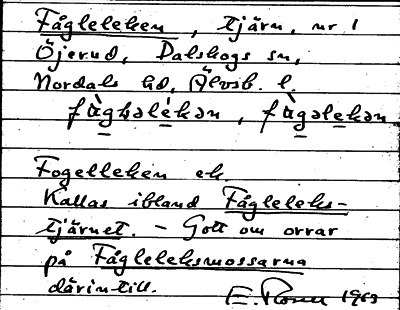 Fågleleken, tjärn, nr 1
Öjerud, Dalskogs sn,
Nordals hd, Älvsb. l.
fàgħəlékən, fàgəlekən.
Fogelleken ek.
Kallas ibland Fågleleks-
tjärnet. - Gott om orrar
på Fågleleksmossarna
därintill.
E. Rosell 1963